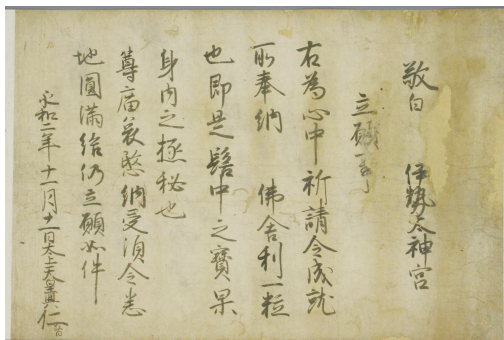 敬白　伊勢太神宮
立願事
右為心中祈請令成就
所奉納　佛舍利一粒
也即是髻中之寶果
身内之極秘也
尊廟哀愍納受須令悉
地圓満給仍立願如件
永和二年十一月十一日太上天皇仁